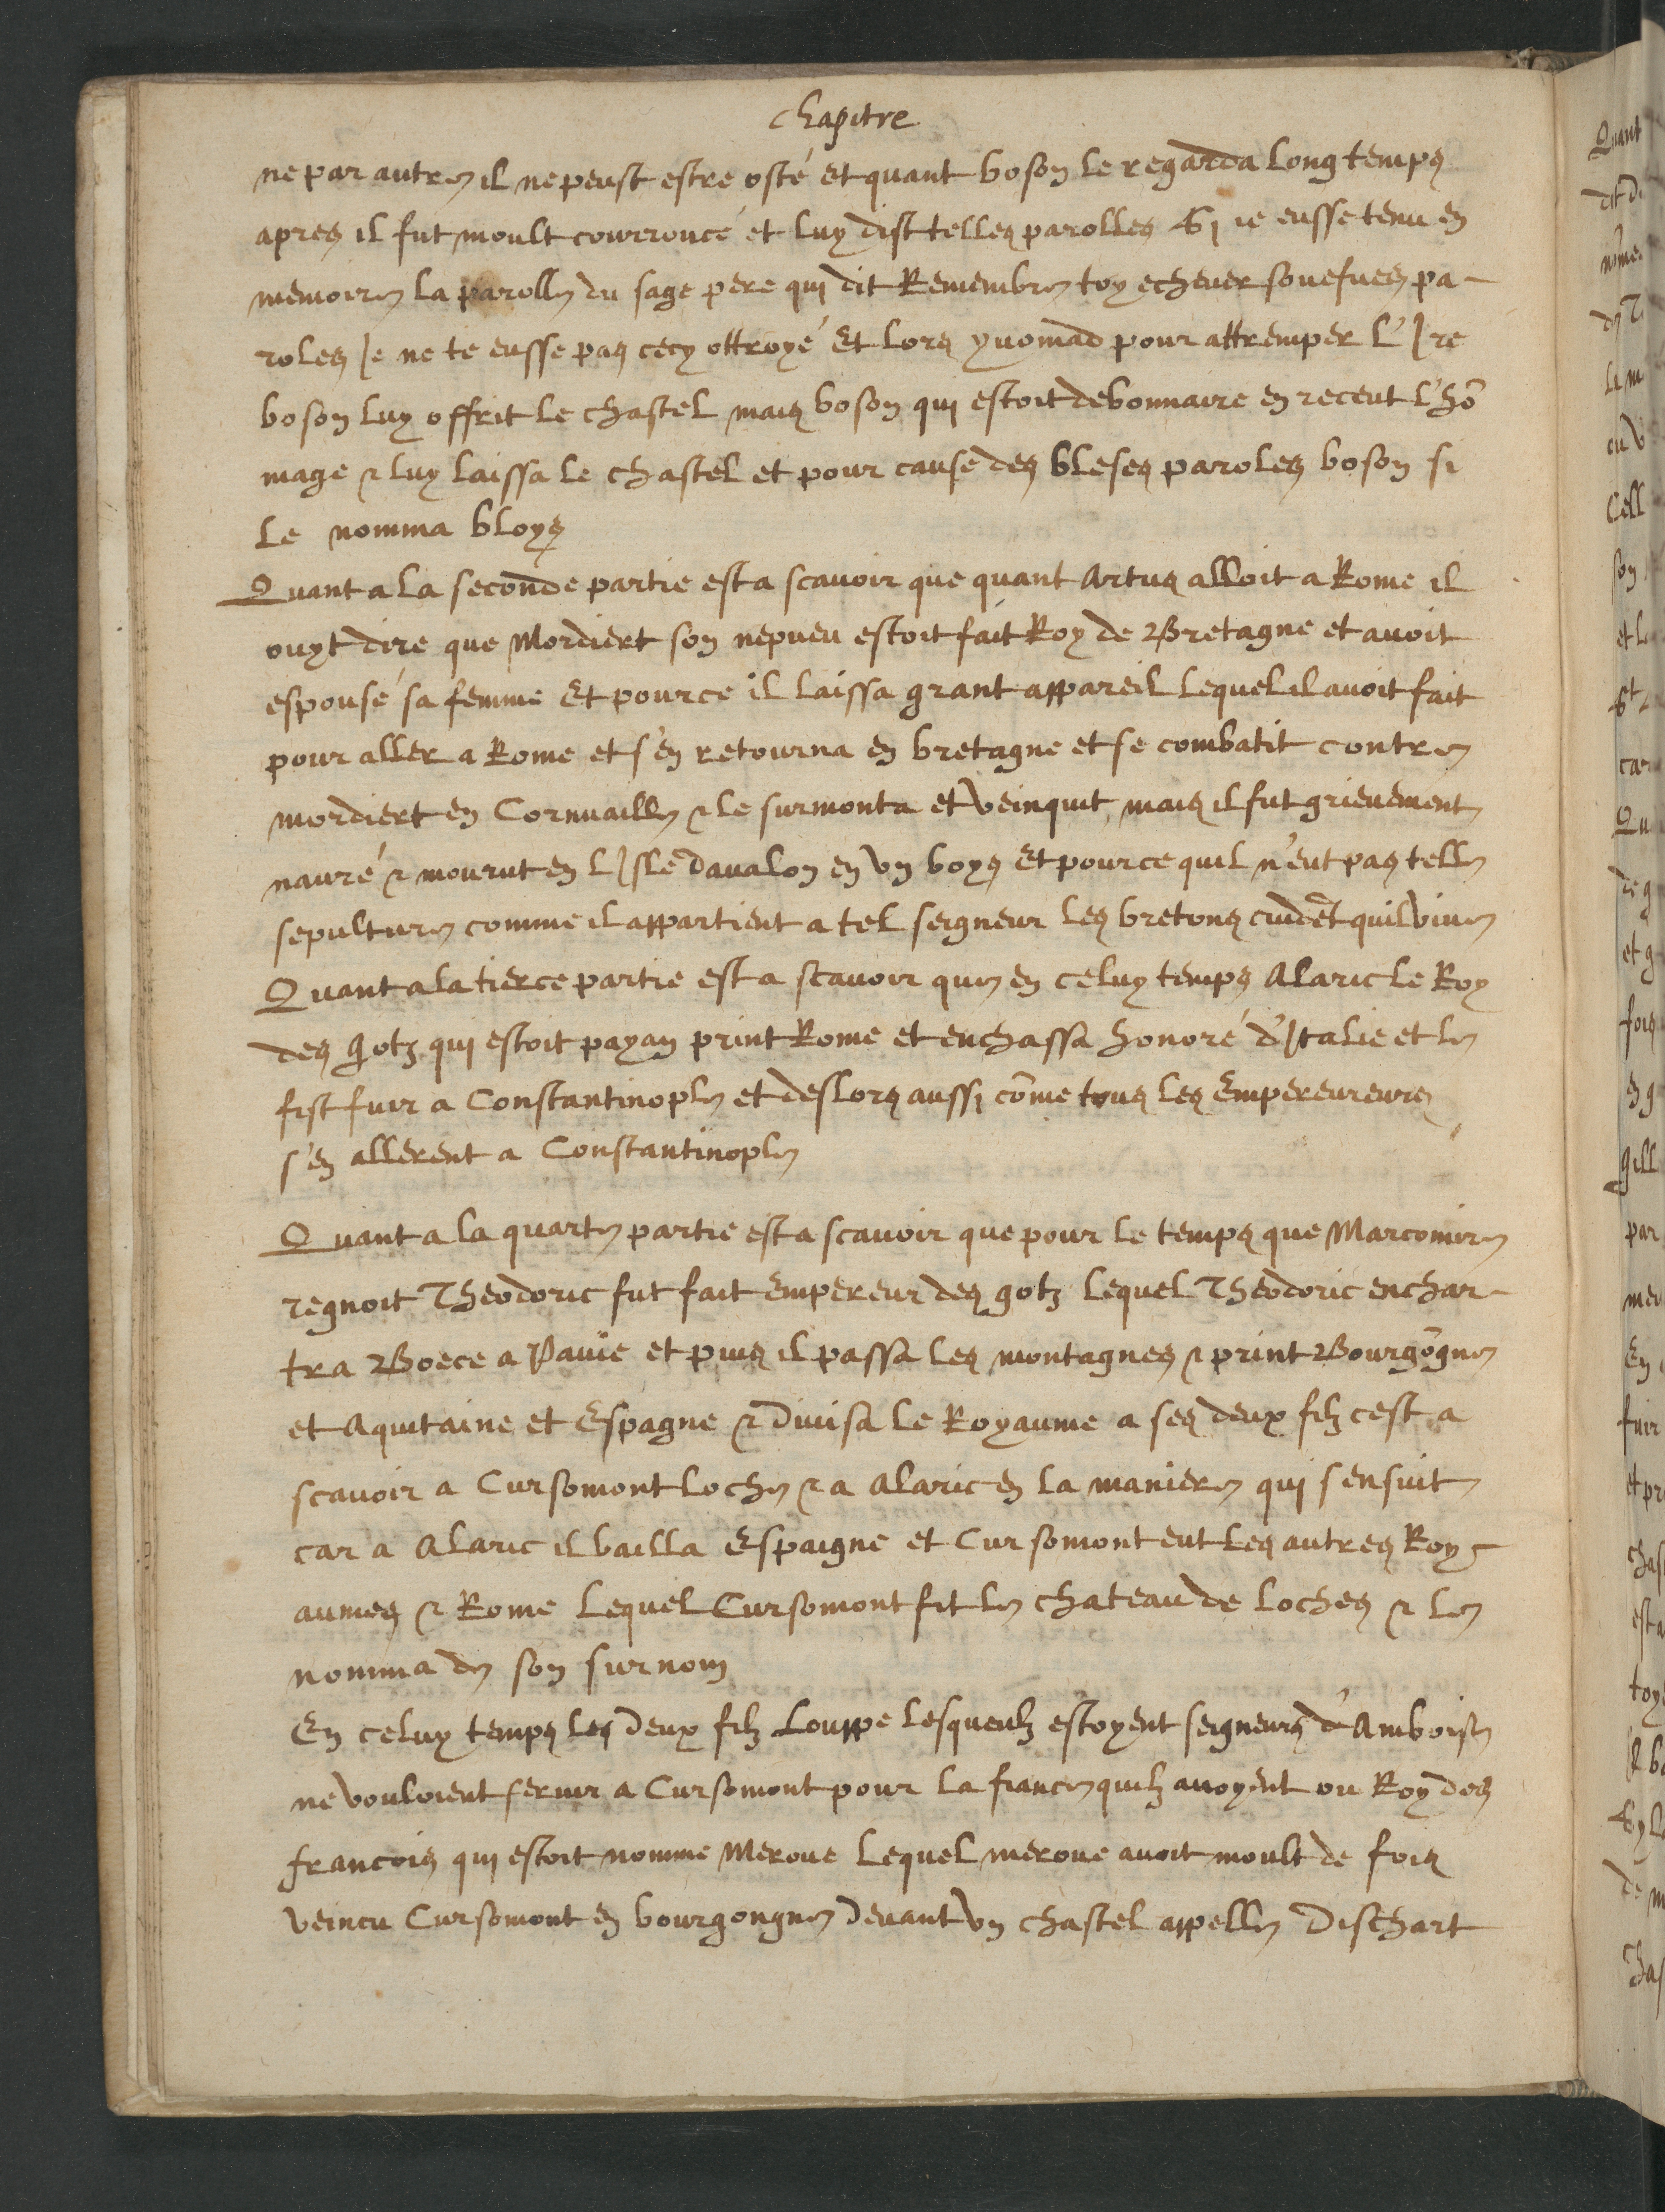 chapitre
ne par autre il ne peust estre osté et quant boson le regarda long temps
apres il fut moult courroucé et luy dist telles parolles Si ie eusse tenu en
memoire la parolle du sage pere qui dit Remembre toy echever souefues pa-
roles Je ne te eusse pas cecy ottroyé Et lors yuomad pour attremper l'Ire
boson luy offrit le chastel mais boson qui estoit debonnaire en receut l'hõ
mage & luy laissa le chastel et pour cause des bleses paroles boson si
le nomma bloys
Quant a la seconde partie est a scavoir que quant Artus alloit a Rome il
ouyt dire que Mordiert son nepueu estoit fait Roy de Bretagne et avoit
espousé sa femme Et pource il laissa grant appareil lequel il avoit fait
pour aller a Rome et s'en retourna en bretagne et se combatit contre
mordiert en Cornuaille & le surmonta et veinquit, mais il fut grievement
navré & mourut en l'Isle davalon en un boys Et pource quil n'eut pas telle
sepulture comme il appartient a tel seigneur les bretons cuidẽt quil vive
Quant a la tierce partie est a scavoir que en celuy temps Alaric le Roy
des gotz qui estoit payan print Rome et enchassa honoré d'Italie et le
fist fuir a Constantinople et deslors aussi cõme tous les Empereureurs
s'en allerent a Constantinople
Quant a la quarte partie est a scavoir que pour le temps que Marcomire
regnoit Theodoric fut fait Empereur des gotz lequel Theodoric enchar-
tra Boece a Pavie et puis il passa les montagnes & print Bourgõgne
et Aquitaine et Espagne & divisa le Royaume a ses deux filz cest a
scavoir a Cursomont loche & a Alaric en la maniere qui sensuit
car a Alaric il bailla Espaigne et Cursomont eut les autres Roy-
aumes & Rome lequel Cursomont fit le chateau de loches & le
nomma de son surnom
En celuy temps les deux filz Louppe lesqueulz estoyent seigneurs d'Amboise
ne vouloient servir a Cursomont pour la fiance quilz avoyent ou Roy des
francois qui estoit nomme Meroue lequel meroue avoit moult de fois
veincu Cursomont en bourgongne devant un chastel appelle Dischart